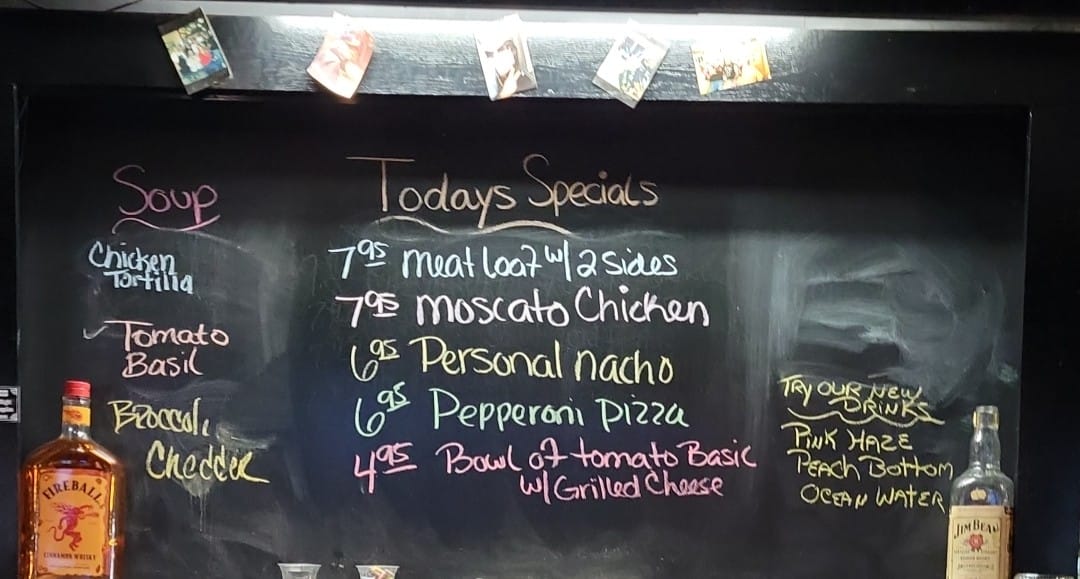 Soup
Chicken
Tortilla
Tomato
Basil
Broccoli
Chedder
Todays Specials
7.95 meat loaf w/ 2 sides
7.95 moscato Chicken
6.95 Personal nacho
6.95 Pepperoni Pizza
4.95 Bowl of tomato Basic
w/ Grilled Cheese
TRY OUR NEW
DRINKS
PINK HAZE
PEACH BOTTOM
OCEAN WATER
FIREBALL
CINNAMON WHISKY
JIM BEAM